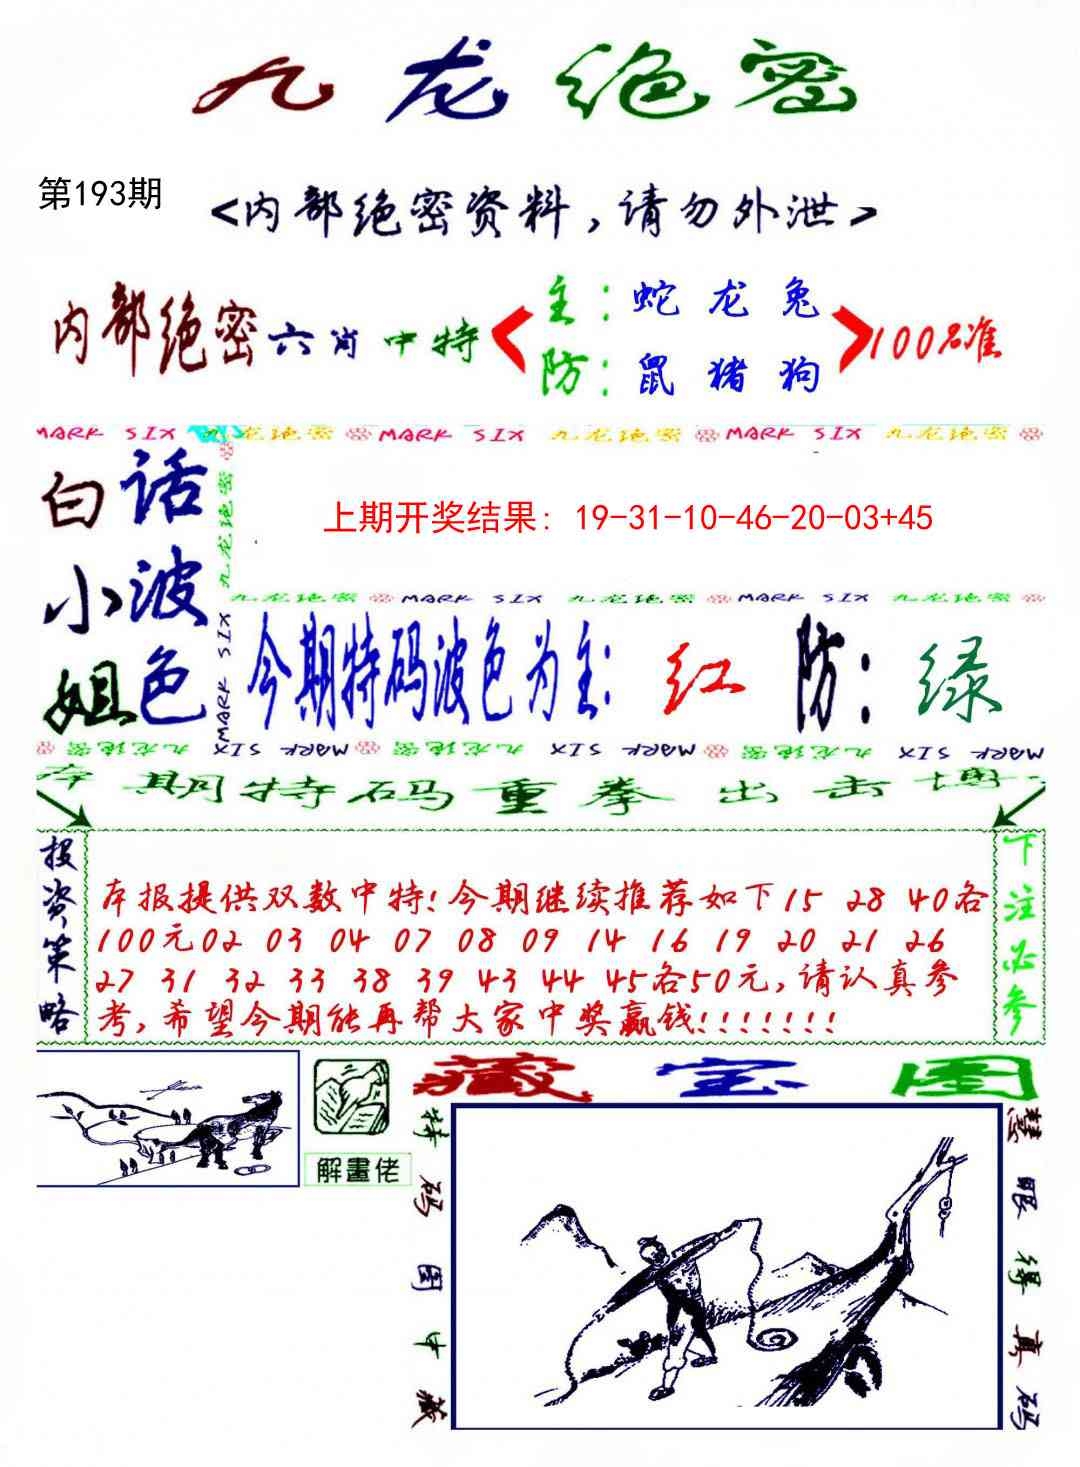 九龙绝密
第193期
<内部绝密资料,请勿外泄>
内部绝密六肖中特
主:蛇 龙 兔
防:鼠 猪 狗
100%准
MARK SIX 九龙绝密 MARK SIX 九龙绝密 MARK SIX 九龙绝密
九龙绝密
MARK SIX
白小姐
话波色
上期开奖结果: 19-31-10-46-20-03+45
九龙绝密 MARK SIX 九龙绝密 MARK SIX 九龙绝密
今期特码波色为主: 红 防: 绿
九龙绝密 MARK SIX 九龙绝密 MARK SIX 九龙绝密 MARK SIX
本期特码重拳出击博
投资策略
本报提供双数中特!今期继续推荐如下15 28 40各
100元02 03 04 07 08 09 14 16 19 20 21 26
27 31 32 33 38 39 43 44 45各50元,请认真参
考,希望今期能再帮大家中奖赢钱!!!!!!!
下注必参
解畫佬
藏宝图
特码图中藏
慧眼得真码